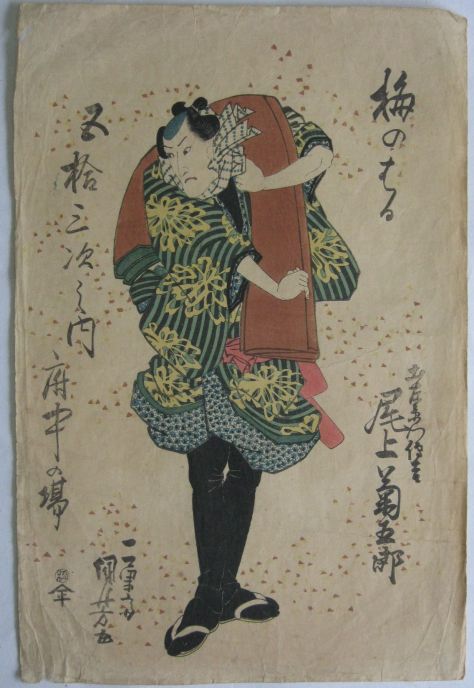 梅のはる
尾上菊五郎
五拾三次之内
府中の場
一勇斎
国芳画